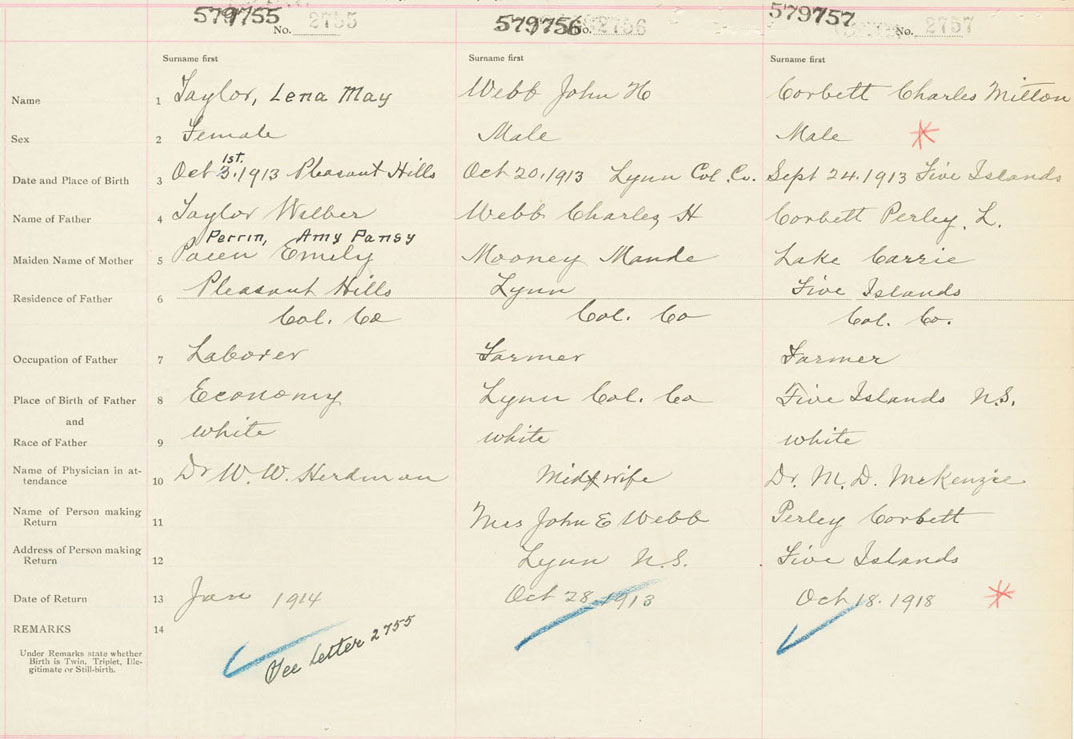 579755 No. 2755 579756 No. 2756 579757 No. 2757
Surname first Surname first Surname first
Name 1 Taylor, Lena May Webb John H Corbett Charles Milton
Sex 2 Female Male Male
1st.
Date and Place of Birth 3 Oct 3. 1913 Pleasant Hills Oct 20. 1913 Lynn Col. Co. Sept 24. 1913 Five Islands
Name of Father 4 Taylor Wilber Webb Charles, H Corbett Perley, L.
Perrin, Amy Pansy
Maiden Name of Mother 5 Emily Mooney Maude Lake Carrie
Residence of Father 6 Pleasant Hills Lynn Five Islands
Col. Co Col. Co Col. Co.
Occupation of Father 7 Laborer Farmer Farmer
Place of Birth of Father 8 Economy Lynn Col. Co Five Islands N.S.
and
Race of Father 9 white white white
Name of Physician in at-
tendance 10 Dr W. W. Herdman Midwife Dr. M. D. McKenzie
Name of Person making
Return 11 Mrs John E Webb Perley Corbett
Address of Person making
Return 12 Lynn N.S. Five Islands
Date of Return 13 Jan 1914 Oct 28 1913 Oct 18. 1918
REMARKS 14
See Letter 2755
Under Remarks state whether
Birth is Twin, Triplet, Ille-
gitimate or Still-birth.